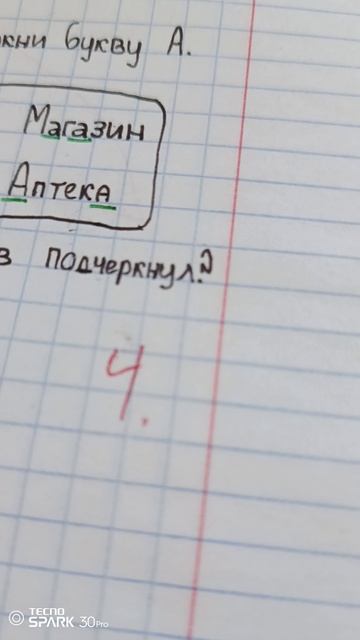 кни букву А.
Магазин
Аптека
в подчеркнул?
4.
TECNO
SPARK 30Pro